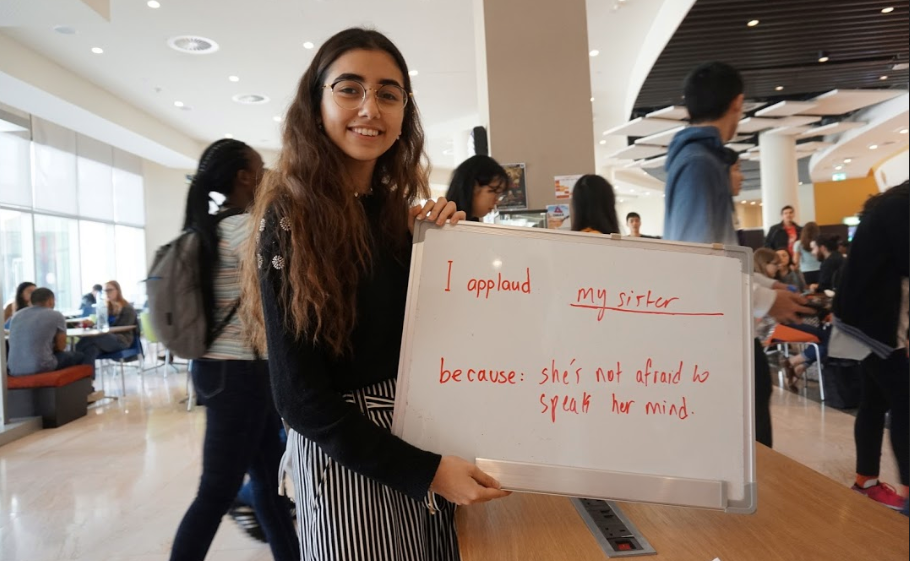 I applaud my sister
because: she's not afraid to
speak her mind.